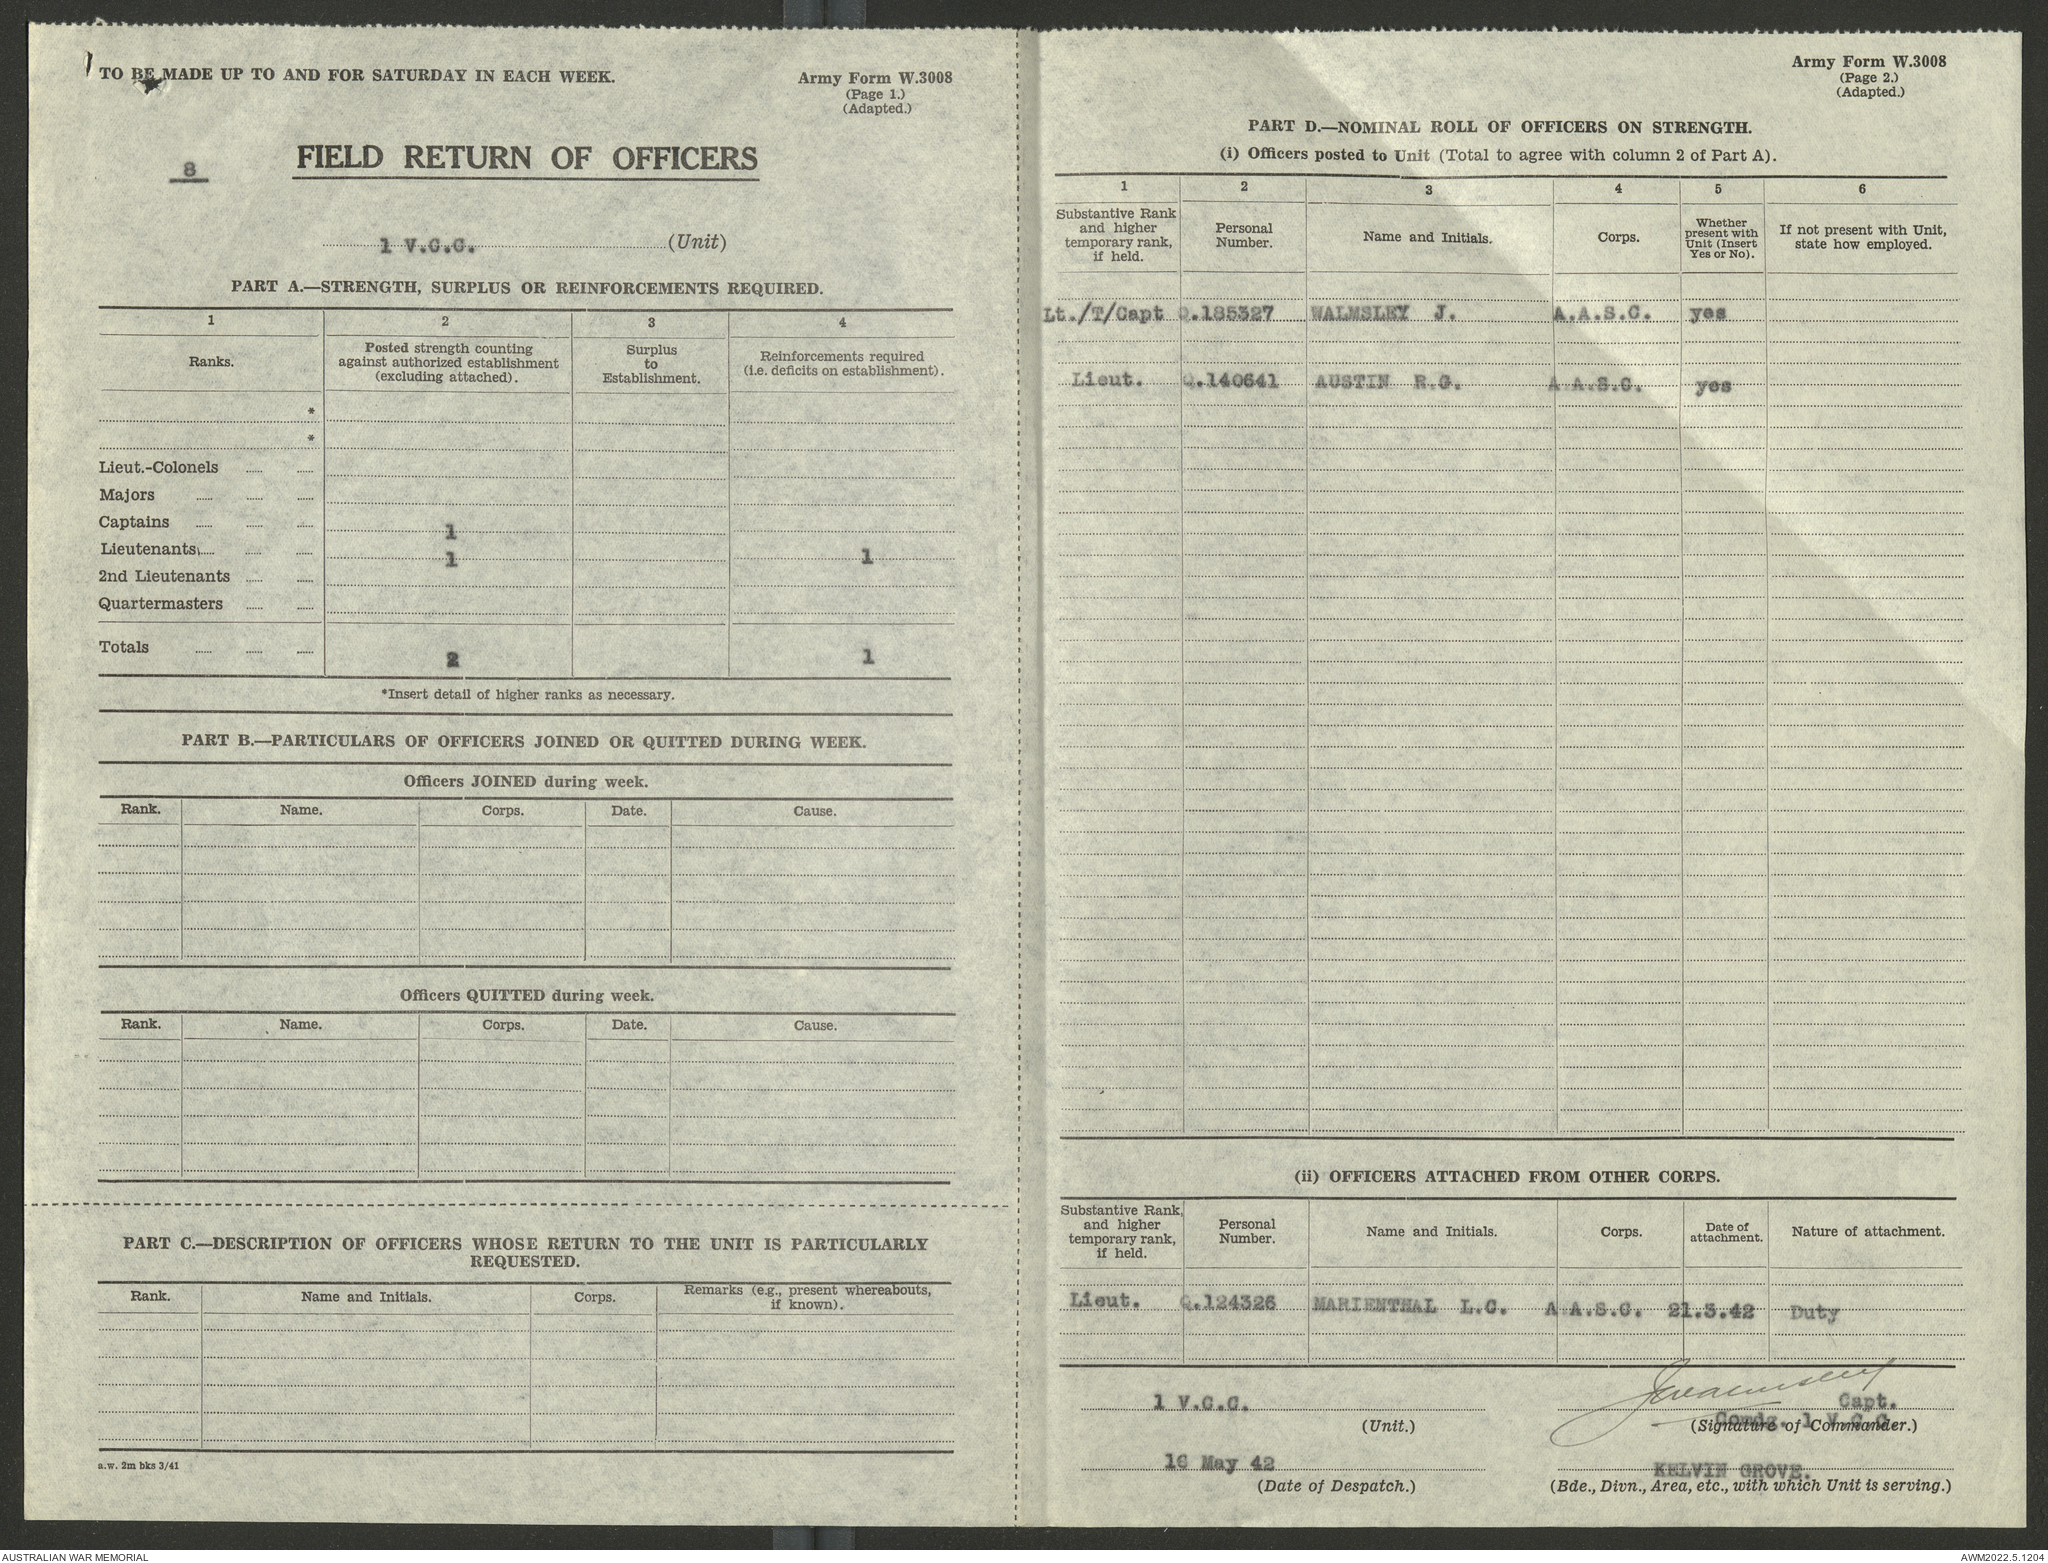 TO BE MADE UP TO AND FOR SATURDAY IN EACH WEEK.
Army Form W.3008
(Page 1.)
(Adapted.)
8
FIELD RETURN OF OFFICERS
1 V.C.C. (Unit)
PART A.—STRENGTH, SURPLUS OR REINFORCEMENTS REQUIRED.
1 2 3 4
Ranks. Posted strength counting against authorized establishment (excluding attached). Surplus to Establishment. Reinforcements required (i.e. deficits on establishment).
*
*
Lieut.-Colonels
Majors
Captains 1
Lieutenants 1 1
2nd Lieutenants
Quartermasters
Totals 2 1
*Insert detail of higher ranks as necessary.
PART B.—PARTICULARS OF OFFICERS JOINED OR QUITTED DURING WEEK.
Officers JOINED during week.
Rank. Name. Corps. Date. Cause.
Officers QUITTED during week.
Rank. Name. Corps. Date. Cause.
PART C.—DESCRIPTION OF OFFICERS WHOSE RETURN TO THE UNIT IS PARTICULARLY
REQUESTED.
Rank. Name and Initials. Corps. Remarks (e.g., present whereabouts, if known).
a.w. 2m bks 3/41
Army Form W.3008
(Page 2.)
(Adapted.)
PART D.—NOMINAL ROLL OF OFFICERS ON STRENGTH.
(i) Officers posted to Unit (Total to agree with column 2 of Part A).
1 2 3 4 5 6
Substantive Rank and higher temporary rank, if held. Personal Number. Name and Initials. Corps. Whether present with Unit (Insert Yes or No). If not present with Unit, state how employed.
Lt./T/Capt Q.185327 WALMSLEY J. A.A.S.C. yes
Lieut. Q.140641 AUSTIN R.G. A.A.S.C. yes
(ii) OFFICERS ATTACHED FROM OTHER CORPS.
Substantive Rank, and higher temporary rank, if held. Personal Number. Name and Initials. Corps. Date of attachment. Nature of attachment.
Lieut. Q.124326 MARIENTHAL L.C. A.A.S.C. 21.3.42 Duty
JWalmsley
1 V.C.C. Capt.
(Unit.) Comdg. 1 V.C.C.
(Signature of Commander.)
16 May 42 KELVIN GROVE.
(Date of Despatch.) (Bde., Divn., Area, etc., with which Unit is serving.)
AUSTRALIAN WAR MEMORIAL AWM2022.5.1204